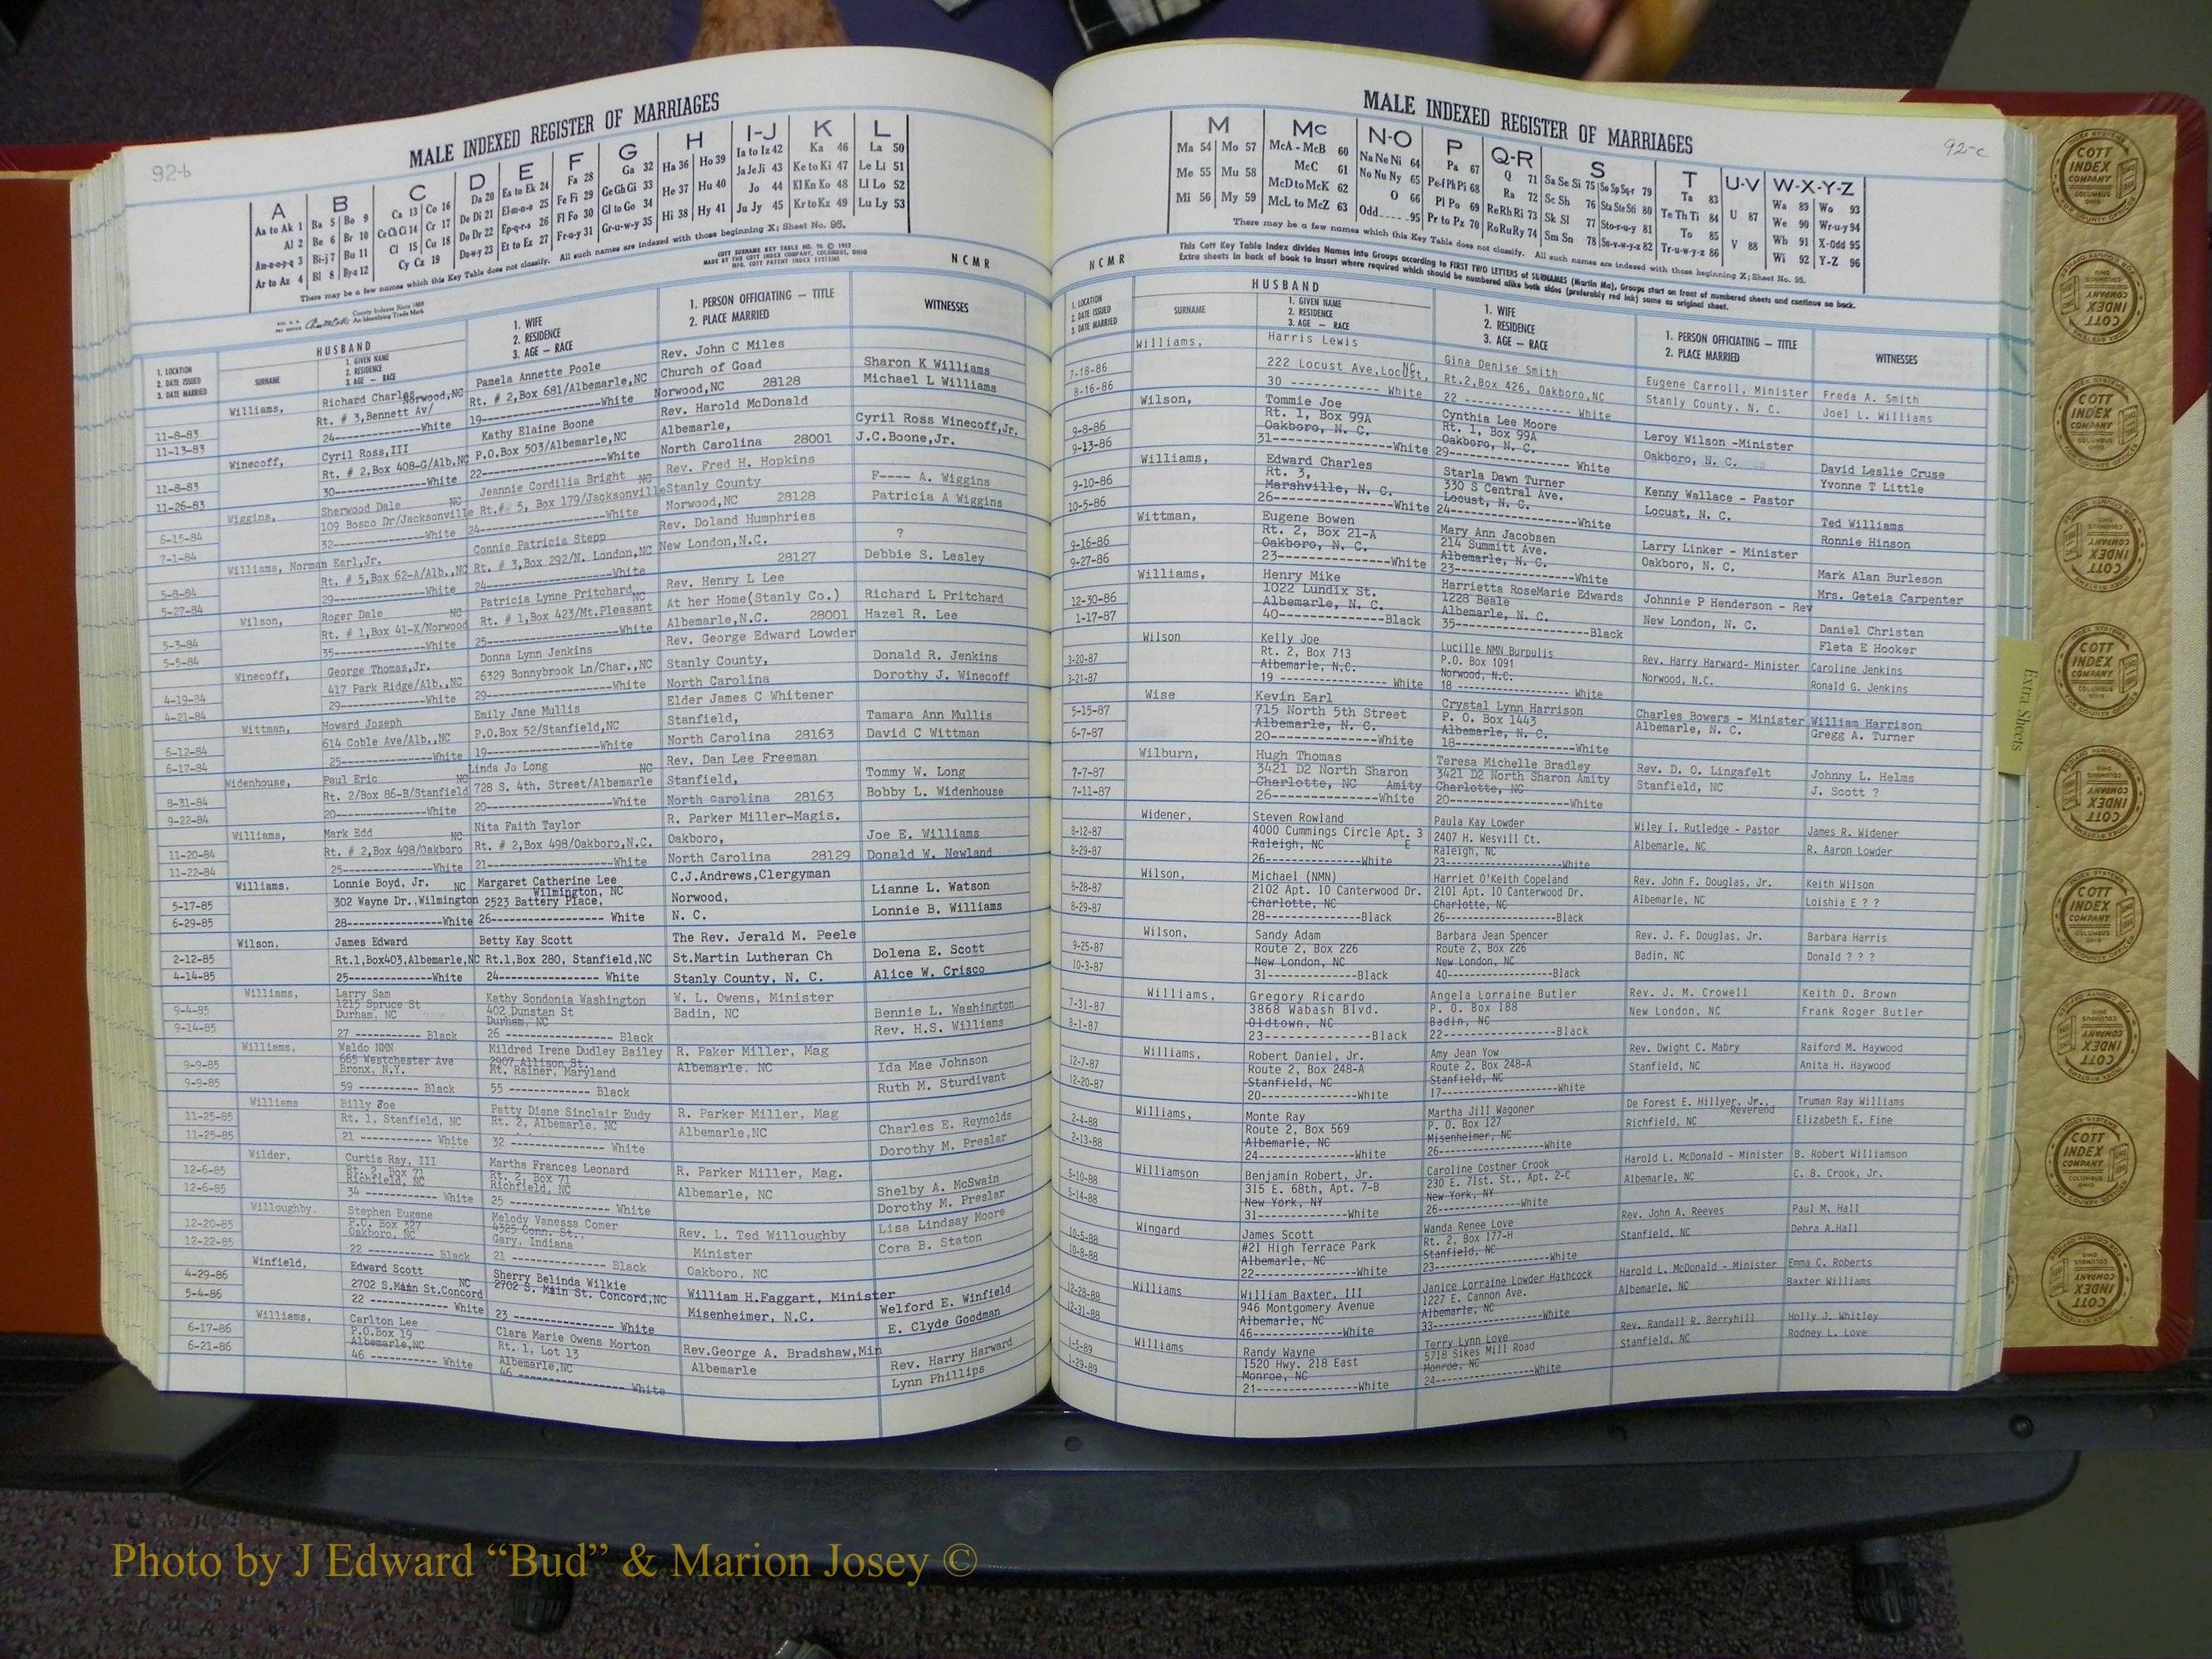 92-b
MALE INDEXED REGISTER OF MARRIAGES
A B C D E F G H I-J K L
Aa to Ak 1 Ba 5 Bo 9 Ca 13 Co 16 Da 20 Ea to Ek 24 Fa 28 Ga 32 Ha 36 Ho 39 Ia to Iz 42 Ka 46 La 50
Al 2 Be 6 Br 10 Ce Ch Ci 14 Cr 17 De Di 21 El-m-n-o 25 Fe Fi 29 Ge Gh Gi 33 He 37 Hu 40 Ja Je Ji 43 Ke to Ki 47 Le Li 51
Am-n-o-p-q 3 Bi-j 7 Bu 11 Cl 15 Cu 18 Do Dr 22 Ep-q-r-s 26 Fl Fo 30 Gl to Go 34 Hi 38 Hy 41 Jo 44 Kl Kn Ko 48 Ll Lo 52
Ar to Az 4 Bl 8 By-z 12 Cy Cz 19 Du-w-y 23 Et to Ez 27 Fr-u-y 31 Gr-u-w-y 35 Ju Jy 45 Kr to Kz 49 Lu Ly 53
There may be a few names which this Key Table does not classify. All such names are indexed with those beginning X; Sheet No. 95.
COTT SURNAME KEY TABLE NO. 96 © 1952
MADE BY THE COTT INDEX COMPANY, COLUMBUS, OHIO
MFG. COTT PATENT INDEX SYSTEMS
NCMR
County Indexes Since 1888
An Identifying Trade Mark
1. LOCATION
2. DATE ISSUED
3. DATE MARRIED
HUSBAND
SURNAME
1. GIVEN NAME
2. RESIDENCE
3. AGE — RACE
1. WIFE
2. RESIDENCE
3. AGE — RACE
1. PERSON OFFICIATING — TITLE
2. PLACE MARRIED
WITNESSES
11-8-83
11-13-83
Williams,
Richard Charles
Norwood,NC
Rt. # 3,Bennett Av/
24--------------White
Pamela Annette Poole
Rt. # 2,Box 681/Albemarle,NC
19------------------White
Rev. John C Miles
Church of Goad
Norwood,NC 28128
Sharon K Williams
Michael L Williams
11-8-83
11-26-83
Winecoff,
Cyril Ross,III
Rt. # 2,Box 408-G/Alb,NC
30--------------White
Kathy Elaine Boone
P.O.Box 503/Albemarle,NC
22------------------White
Rev. Harold McDonald
Albemarle,
North Carolina 28001
Cyril Ross Winecoff,Jr.
J.C.Boone,Jr.
6-15-84
7-1-84
Wiggins,
Sherwood Dale NC
109 Bosco Dr/Jacksonville
32--------------White
Jeannie Cordilia Bright NC
Rt.# 5, Box 179/Jacksonville
24------------------White
Rev. Fred H. Hopkins
Stanly County
Norwood,NC 28128
F---- A. Wiggins
Patricia A Wiggins
5-8-84
5-27-84
Williams, Norman Earl,Jr.
Rt. # 5,Box 62-A/Alb.,NC
29--------------White
Connie Patricia Stepp
Rt. # 3,Box 292/N. London,NC
24------------------White
Rev. Doland Humphries
New London,N.C.
28127
?
Debbie S. Lesley
5-3-84
5-5-84
Wilson,
Roger Dale NC
Rt. # 1,Box 41-X/Norwood
35--------------White
Patricia Lynne Pritchard NC
Rt. # 1,Box 423/Mt.Pleasant
25------------------White
Rev. Henry L Lee
At her Home(Stanly Co.)
Albemarle,N.C. 28001
Richard L Pritchard
Hazel R. Lee
4-19-84
4-21-84
Winecoff,
George Thomas,Jr.
417 Park Ridge/Alb.,NC
29--------------White
Donna Lynn Jenkins
6329 Bonnybrook Ln/Char.,NC
29------------------White
Rev. George Edward Lowder
Stanly County,
North Carolina
Donald R. Jenkins
Dorothy J. Winecoff
6-12-84
6-17-84
Wittman,
Howard Joseph
614 Coble Ave/Alb.,NC
25--------------White
Emily Jane Mullis
P.O.Box 52/Stanfield,NC
19------------------White
Elder James C Whitener
Stanfield,
North Carolina 28163
Tamara Ann Mullis
David C Wittman
8-31-84
9-22-84
Widenhouse,
Paul Eric NC
Rt. 2/Box 86-B/Stanfield
20--------------White
Linda Jo Long NC
728 S. 4th. Street/Albemarle
20------------------White
Rev. Dan Lee Freeman
Stanfield,
North carolina 28163
Tommy W. Long
Bobby L. Widenhouse
11-20-84
11-22-84
Williams,
Mark Edd NC
Rt. # 2,Box 498/Oakboro
25--------------White
Nita Faith Taylor
Rt. # 2,Box 498/Oakboro,N.C.
21------------------White
R. Parker Miller-Magis.
Oakboro,
North Carolina 28129
Joe E. Williams
Donald W. Newland
5-17-85
6-29-85
Williams,
Lonnie Boyd, Jr. NC
302 Wayne Dr.,Wilmington
28--------------White
Margaret Catherine Lee
Wilmington, NC
2523 Battery Place,
26------------------ White
C.J.Andrews,Clergyman
Norwood,
N. C.
Lianne L. Watson
Lonnie B. Williams
2-12-85
4-14-85
Wilson,
James Edward
Rt.1,Box403,Albemarle,NC
25--------------White
Betty Kay Scott
Rt.1,Box 280, Stanfield,NC
24---------------- White
The Rev. Jerald M. Peele
St.Martin Lutheran Ch
Stanly County, N. C.
Dolena E. Scott
Alice W. Crisco
9-4-85
9-14-85
Williams,
Larry Sam
1215 Spruce St
Durham, NC
27 ----------- Black
Kathy Sondonia Washington
402 Dunstan St
Durham, NC
26 --------------- Black
W. L. Owens, Minister
Badin, NC
Bennie L. Washington
Rev. H.S. Williams
9-9-85
9-9-85
Williams,
Waldo NMN
665 Westchester Ave
Bronx, N.Y.
59 ---------- Black
Mildred Irene Dudley Bailey
2907 Allison St.
Mt. Rainer, Maryland
55 ----------- Black
R. Paker Miller, Mag
Albemarle. NC
Ida Mae Johnson
Ruth M. Sturdivant
11-25-85
11-25-85
Williams
Billy Joe
Rt. 1, Stanfield, NC
21 ------------ White
Patty Diane Sinclair Eudy
Rt. 2, Albemarle. NC
32 -------------- White
R. Parker Miller, Mag
Albemarle,NC
Charles E. Reynolds
Dorothy M. Preslar
12-6-85
12-6-85
Wilder,
Curtis Ray, III
Rt. 2, Box 71
Richfield, NC
34 ------------ White
Martha Frances Leonard
Rt. 2, Box 71
Richfield, NC
25 -------------- White
R. Parker Miller, Mag.
Albemarle, NC
Shelby A. McSwain
Dorothy M. Preslar
12-20-85
12-22-85
Willoughby.
Stephen Eugene
P.O. Box 327
Oakboro, NC
22 ----------- Black
Melody Vanessa Comer
4325 Conn. St.,
Gary, Indiana
21 -------------- Black
Rev. L. Ted Willoughby
Minister
Oakboro, NC
Lisa Lindsay Moore
Cora B. Staton
4-29-86
5-4-86
Winfield,
Edward Scott
NC
2702 S.Main St.Concord
22 ------------ White
Sherry Belinda Wilkie
2702 S. Main St. Concord,NC
23 --------------- White
William H.Faggart, Minister
Misenheimer, N.C.
Welford E. Winfield
E. Clyde Goodman
6-17-86
6-21-86
Williams,
Carlton Lee
P.O.Box 19
Albemarle,NC
46 ---------- White
Clara Marie Owens Morton
Rt. 1, Lot 13
Albemarle,NC
46 --------------- White
Rev.George A. Bradshaw,Min
Albemarle
Rev. Harry Harward
Lynn Phillips
92-c
MALE INDEXED REGISTER OF MARRIAGES
M Mc N-O P Q-R S T U-V W-X-Y-Z
Ma 54 Mo 57 McA - McB 60 Na Ne Ni 64 Pa 67 Q 71 Sa Se Si 75 So Sp Sq-r 79 Ta 83 U 87 Wa 89 Wo 93
Me 55 Mu 58 McC 61 No Nu Ny 65 Pe-f Ph Pi 68 Ra 72 Sc Sh 76 Sta Ste Sti 80 Te Th Ti 84 V 88 We 90 Wr-u-y 94
Mi 56 My 59 McD to McK 62 O 66 Pl Po 69 Re Rh Ri 73 Sk Sl 77 Sto-r-u-y 81 To 85 Wh 91 X-Odd 95
McL to McZ 63 Odd 95 Pr to Pz 70 Ro Ru Ry 74 Sm Sn 78 Su-v-w-y-z 82 Tr-u-w-y-z 86 Wi 92 Y-Z 96
There may be a few names which this Key Table does not classify. All such names are indexed with those beginning X; Sheet No. 95.
This Cott Key Table Index divides Names into Groups according to FIRST TWO LETTERS of SURNAMES (Martin Ma), Groups start on front of numbered sheets and continue on back.
Extra sheets in back of book to insert where required which should be numbered alike both sides (preferably red ink) same as original sheet.
NCMR
1. LOCATION
2. DATE ISSUED
3. DATE MARRIED
HUSBAND
SURNAME
1. GIVEN NAME
2. RESIDENCE
3. AGE — RACE
1. WIFE
2. RESIDENCE
3. AGE — RACE
1. PERSON OFFICIATING — TITLE
2. PLACE MARRIED
WITNESSES
7-18-86
8-16-86
Williams,
Harris Lewis
NC
222 Locust Ave,Locust,
30 ------------ White
Gina Denise Smith
Rt.2,Box 426, Oakboro,NC
22 --------------- White
Eugene Carroll, Minister
Stanly County, N. C.
Freda A. Smith
Joel L. Williams
9-8-86
9-13-86
Wilson,
Tommie Joe
Rt. 1, Box 99A
Oakboro, N. C.
31----------------White
Cynthia Lee Moore
Rt. 1, Box 99A
Oakboro, N. C.
29----------------- White
Leroy Wilson -Minister
Oakboro, N. C.
David Leslie Cruse
Yvonne T Little
9-10-86
10-5-86
Williams,
Edward Charles
Rt. 3,
Marshville, N. C.
26-----------------White
Starla Dawn Turner
330 S Central Ave.
Locust, N. C.
24-----------------White
Kenny Wallace - Pastor
Locust, N. C.
Ted Williams
Ronnie Hinson
9-16-86
9-27-86
Wittman,
Eugene Bowen
Rt. 2, Box 21-A
Oakboro, N. C.
23----------------White
Mary Ann Jacobsen
214 Summitt Ave.
Albemarle, N. C.
23-----------------White
Larry Linker - Minister
Oakboro, N. C.
Mark Alan Burleson
Mrs. Geteia Carpenter
12-30-86
1-17-87
Williams,
Henry Mike
1022 Lundix St.
Albemarle, N. C.
40---------------Black
Harrietta RoseMarie Edwards
1228 Beale
Albemarle, N. C.
35-------------------Black
Johnnie P Henderson - Rev
New London, N. C.
Daniel Christan
Fleta E Hooker
3-20-87
3-21-87
Wilson
Kelly Joe
Rt. 2, Box 713
Albemarle, N.C.
19 ---------------- White
Lucille NMN Burpulis
P.O. Box 1091
Norwood, N.C.
18 ---------------- White
Rev. Harry Harward- Minister
Norwood, N.C.
Caroline Jenkins
Ronald G. Jenkins
5-15-87
6-7-87
Wise
Kevin Earl
715 North 5th Street
Albemarle, N. C.
20----------------White
Crystal Lynn Harrison
P. O. Box 1443
Albemarle, N. C.
18-----------------White
Charles Bowers - Minister
Albemarle, N. C.
William Harrison
Gregg A. Turner
7-7-87
7-11-87
Wilburn,
Hugh Thomas
3421 D2 North Sharon
Charlotte, NC Amity
26----------------White
Teresa Michelle Bradley
3421 D2 North Sharon Amity
Charlotte, NC
20-----------------White
Rev. D. O. Lingafelt
Stanfield, NC
Johnny L. Helms
J. Scott ?
8-12-87
8-29-87
Widener,
Steven Rowland
4000 Cummings Circle Apt. 3
Raleigh, NC E
26--------------White
Paula Kay Lowder
2407 H. Wesvill Ct.
Raleigh, NC
23------------------White
Wiley I. Rutledge - Pastor
Albemarle, NC
James R. Widener
R. Aaron Lowder
8-28-87
8-29-87
Wilson,
Michael (NMN)
2102 Apt. 10 Canterwood Dr.
Charlotte, NC
28--------------Black
Harriet O'Keith Copeland
2101 Apt. 10 Canterwood Dr.
Charlotte, NC
26-----------------Black
Rev. John F. Douglas, Jr.
Albemarle, NC
Keith Wilson
Loishia E ? ?
9-25-87
10-3-87
Wilson,
Sandy Adam
Route 2, Box 226
New London, NC
31--------------Black
Barbara Jean Spencer
Route 2, Box 226
New London, NC
40----------------Black
Rev. J. F. Douglas, Jr.
Badin, NC
Barbara Harris
Donald ? ? ?
7-31-87
8-1-87
Williams,
Gregory Ricardo
3868 Wabash Blvd.
Oldtown, NC
23----------------Black
Angela Lorraine Butler
P. O. Box 188
Badin, NC
22-----------------Black
Rev. J. M. Crowell
New London, NC
Keith D. Brown
Frank Roger Butler
12-7-87
12-20-87
Williams,
Robert Daniel, Jr.
Route 2, Box 248-A
Stanfield, NC
20--------------White
Amy Jean Yow
Route 2, Box 248-A
Stanfield, NC
17-----------------White
Rev. Dwight C. Mabry
Stanfield, NC
Raiford M. Haywood
Anita H. Haywood
2-4-88
2-13-88
Williams,
Monte Ray
Route 2, Box 569
Albemarle, NC
24--------------White
Martha Jill Wagoner
P. O. Box 127
Misenheimer, NC
26---------------White
De Forest E. Hillyer, Jr.,
Reverend
Richfield, NC
Truman Ray Williams
Elizabeth E. Fine
5-10-88
5-14-88
Williamson
Benjamin Robert, Jr.
315 E. 68th, Apt. 7-B
New York, NY
31--------------White
Caroline Costner Crook
230 E. 71st. St., Apt. 2-C
New York, NY
26---------------White
Harold L. McDonald - Minister
Albemarle, NC
B. Robert Williamson
C. B. Crook, Jr.
10-5-88
10-8-88
Wingard
James Scott
#21 High Terrace Park
Albemarle, NC
22----------------White
Wanda Renee Love
Rt. 2, Box 177-H
Stanfield, NC
23----------------White
Rev. John A. Reeves
Stanfield, NC
Paul M. Hall
Debra A.Hall
12-28-88
12-31-88
Williams
William Baxter, III
946 Montgomery Avenue
Albemarle, NC
46--------------White
Janice Lorraine Lowder Hathcock
1227 E. Cannon Ave.
Albemarle, NC
33---------------White
Harold L. McDonald - Minister
Albemarle, NC
Emma C. Roberts
Baxter Williams
1-5-89
1-29-89
Williams
Randy Wayne
1520 Hwy. 218 East
Monroe, NC
21----------------White
Terry Lynn Love
5718 Sikes Mill Road
Monroe, NC
24---------------White
Rev. Randall R. Berryhill
Stanfield, NC
Holly J. Whitley
Rodney L. Love
Extra Sheets
COTT INDEX COMPANY COLUMBUS OHIO
Photo by J Edward “Bud” & Marion Josey ©